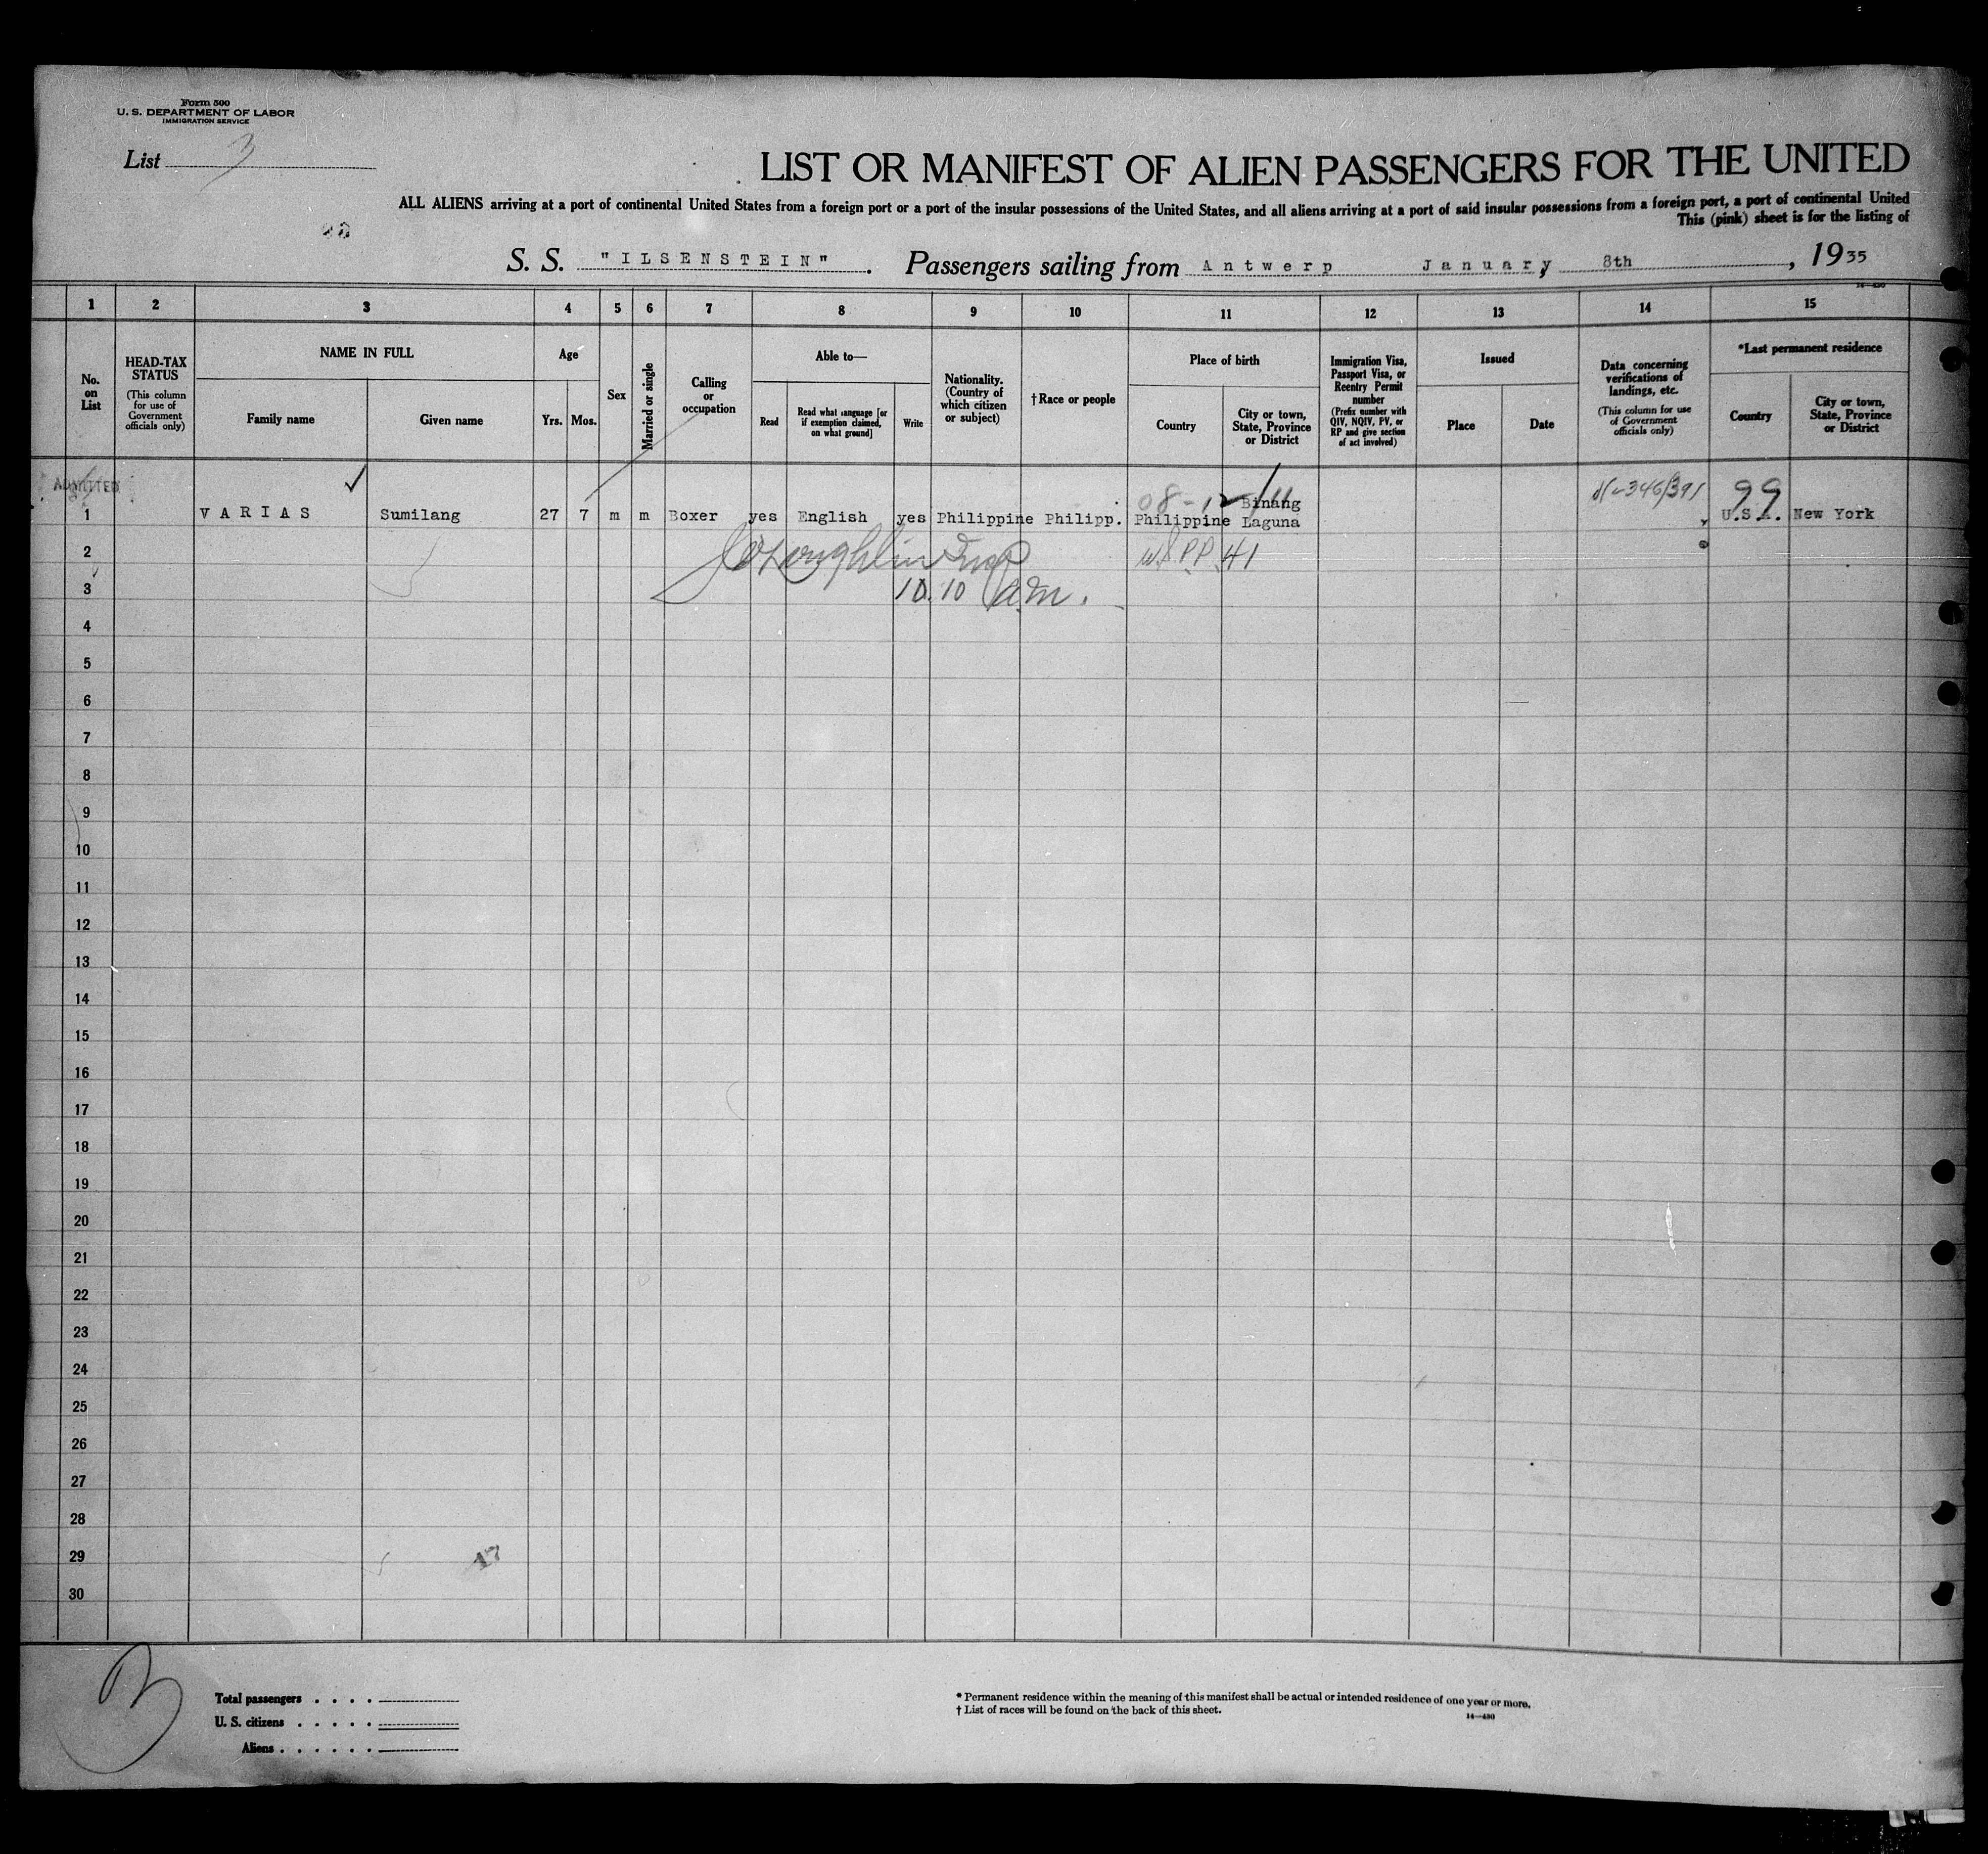 Form 500
U. S. DEPARTMENT OF LABOR
IMMIGRATION SERVICE
List 3
LIST OR MANIFEST OF ALIEN PASSENGERS FOR THE UNITED
ALL ALIENS arriving at a port of continental United States from a foreign port or a port of the insular possessions of the United States, and all aliens arriving at a port of said insular possessions from a foreign port, a port of continental United
This (pink) sheet is for the listing of
S. S. "ILSENSTEIN". Passengers sailing from Antwerp January, 8th, 1935
14—430
1 2 3 4 5 6 7 8 9 10 11 12 13 14 15
No. on List
HEAD-TAX STATUS
(This column for use of Government officials only)
NAME IN FULL
Family name
Given name
Age
Yrs.
Mos.
Sex
Married or single
Calling or occupation
Able to—
Read
Read what language [or if exemption claimed, on what ground]
Write
Nationality. (Country of which citizen or subject)
†Race or people
Place of birth
Country
City or town, State, Province or District
Immigration Visa, Passport Visa, or Reentry Permit number
(Prefix number with QIV, NQIV, PV, or RP and give section of act involved)
Issued
Place
Date
Data concerning verifications of landings, etc.
(This column for use of Government officials only)
*Last permanent residence
Country
City or town, State, Province or District
ADMITTED
99
Binang
1 VARIAS Sumilang 27 7 m m Boxer yes English yes Philippine Philipp. Philippine Laguna U.S.A. New York
2
3 10.10 am.
4
5
6
7
8
9
10
11
12
13
14
15
16
17
18
19
20
21
22
23
24
25
26
27
28
29
30
3
Total passengers
U. S. citizens
Aliens
* Permanent residence within the meaning of this manifest shall be actual or intended residence of one year or more.
† List of races will be found on the back of this sheet.
14—430